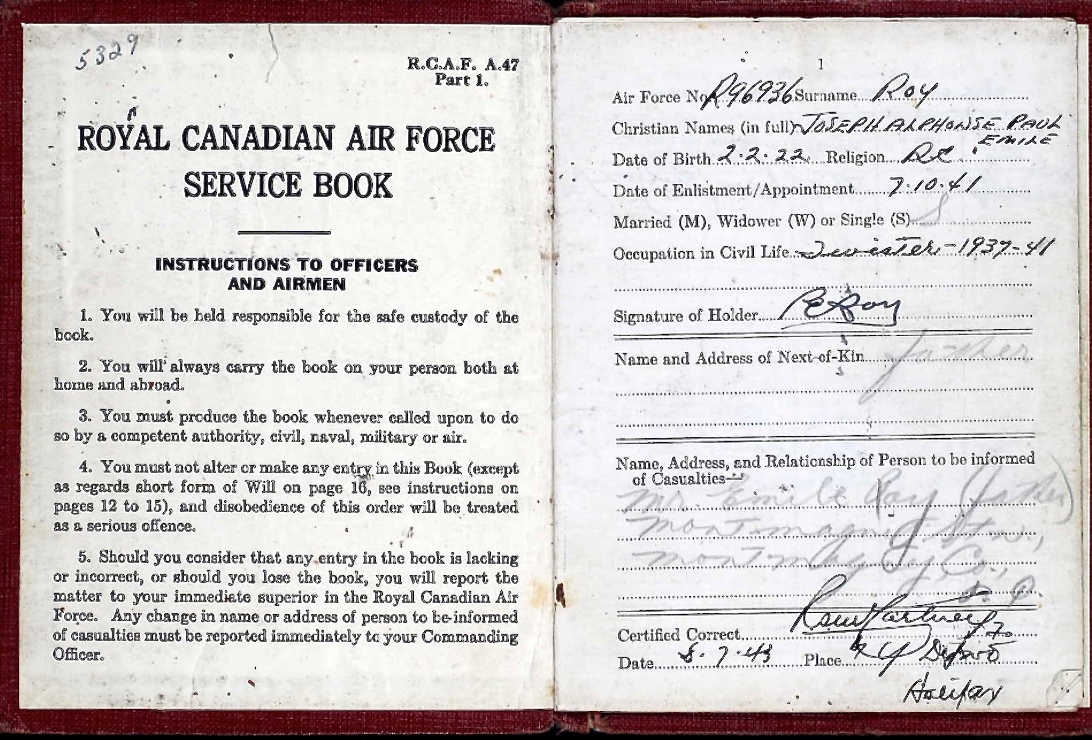 5329
R.C.A.F. A.47
Part 1.
ROYAL CANADIAN AIR FORCE
SERVICE BOOK
INSTRUCTIONS TO OFFICERS
AND AIRMEN
1. You will be held responsible for the safe custody of the
book.
2. You will always carry the book on your person both at
home and abroad.
3. You must produce the book whenever called upon to do
so by a competent authority, civil, naval, military or air.
4. You must not alter or make any entry in this Book (except
as regards short form of Will on page 16, see instructions on
pages 12 to 15), and disobedience of this order will be treated
as a serious offence.
5. Should you consider that any entry in the book is lacking
or incorrect, or should you lose the book, you will report the
matter to your immediate superior in the Royal Canadian Air
Force. Any change in name or address of person to be informed
of casualties must be reported immediately to your Commanding
Officer.
1
Air Force No. R96936 Surname Roy
Christian Names (in full) JOSEPH ALPHONSE PAUL
EMILE
Date of Birth 2.2.22 Religion RC
Date of Enlistment/Appointment 7.10.41
Married (M), Widower (W) or Single (S) S
Occupation in Civil Life Twister-1937-41
Signature of Holder PE Roy
Name and Address of Next-of-Kin father
Name, Address, and Relationship of Person to be informed
of Casualties—
Mr. Emile Roy (father)
Montmagny Stn.,
Montmagny Co.,
P.Q.
Certified Correct
Date 8.7.43 Place "Y" Depot
Halifax